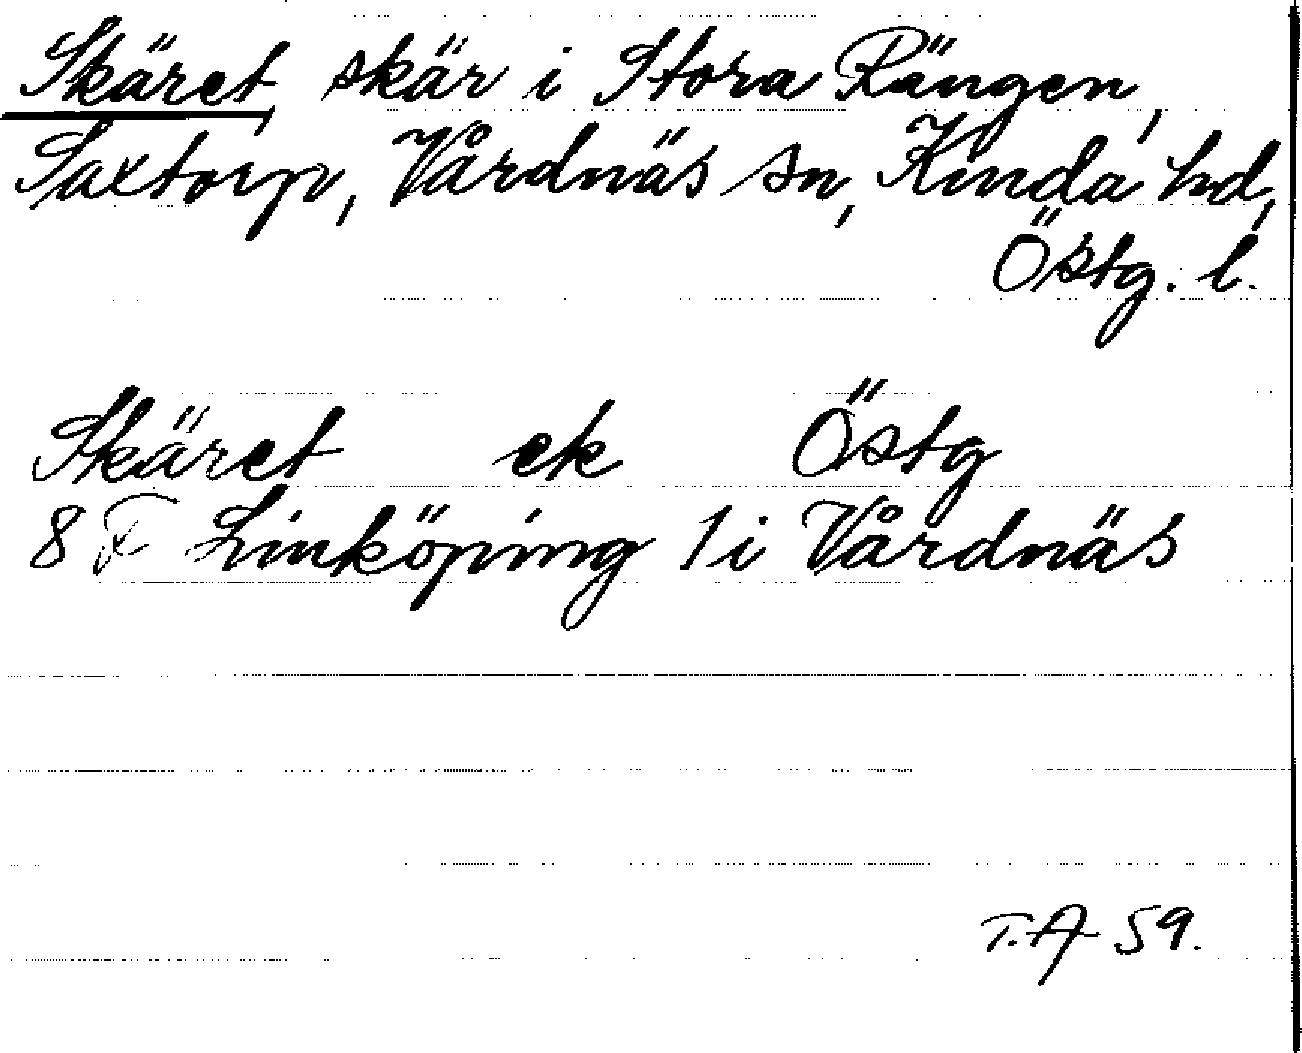 Skäret, skär i Stora Rängen,
Saxtorp, Vårdnäs sn, Kinda hd,
Östg. l.
Skäret ek Östg
8 F Linköping 1 i Vårdnäs
T.A 59.